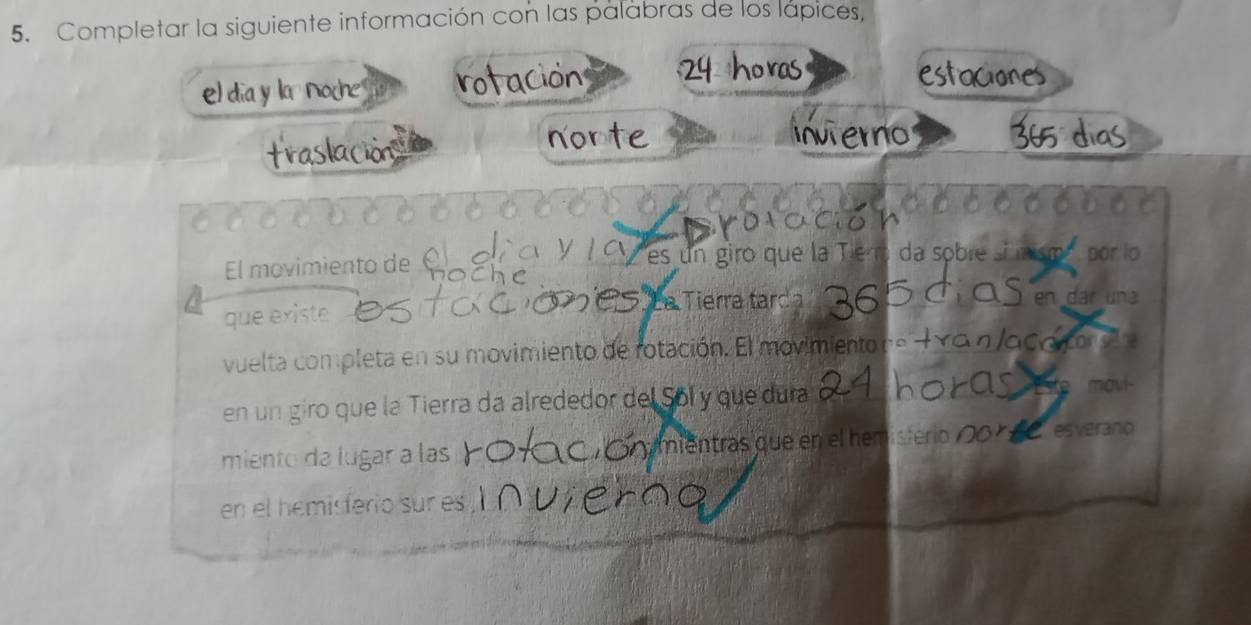 5. Completar la siguiente información con las palabras de los lápices,
el dia y la noche rotación 24 horas estaciones
traslación norte invierno 365 dias
rotación
El movimiento de el dia y la noche es un giro que la Tierra da sobre sí misma por lo
que existe estaciones La Tierra tarda 365 dias en dar una
vuelta completa en su movimiento de rotación. El movimiento de tranlación
en un giro que la Tierra da alrededor del Sol y que dura 24 horas Este movi-
miento da lugar a las rotación mientras que en el hemisferio norte es verano
en el hemisferio sur es invierno